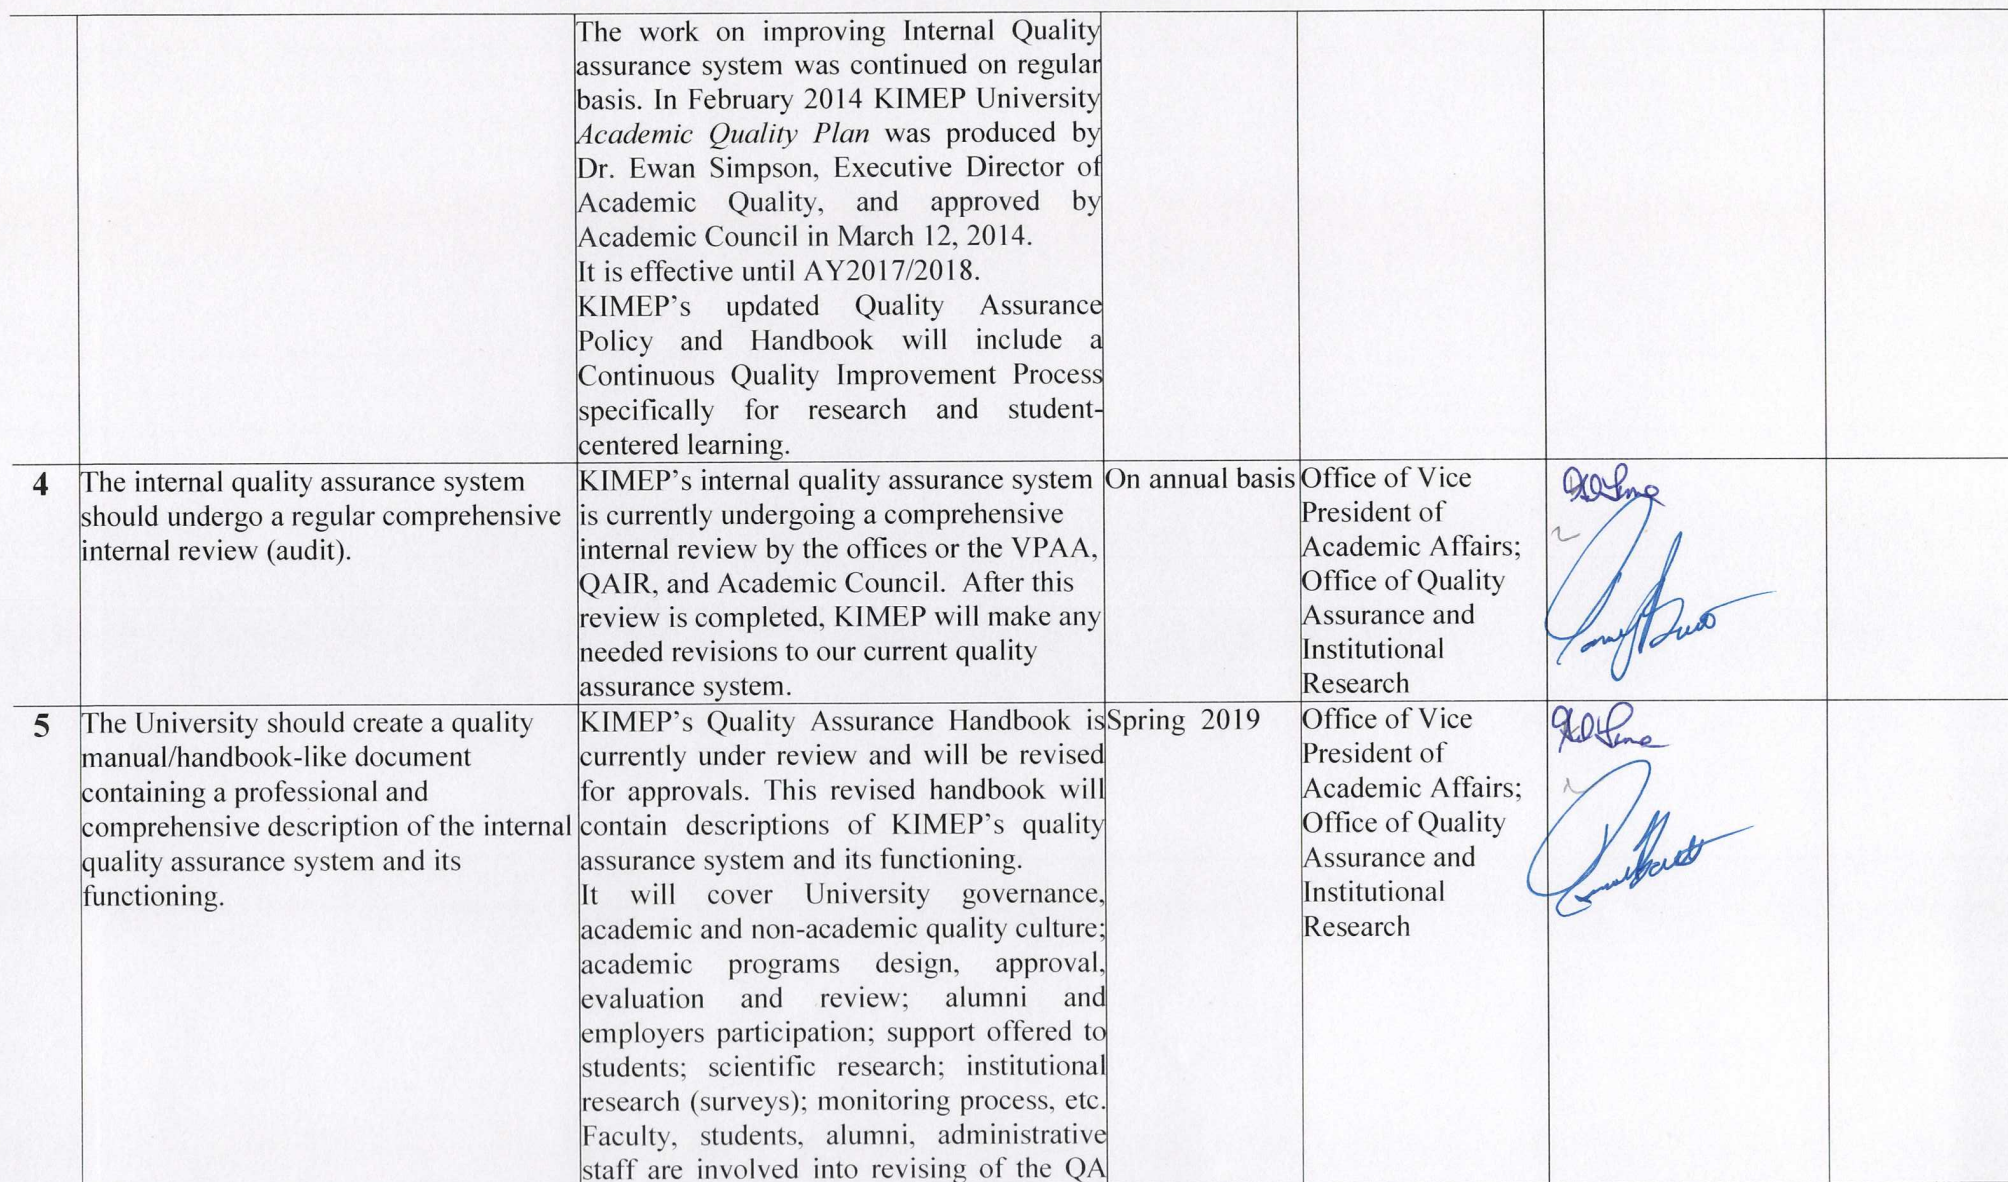 The work on improving Internal Quality
assurance system was continued on regular
basis. In February 2014 KIMEP University
Academic Quality Plan was produced by
Dr. Ewan Simpson, Executive Director of
Academic Quality, and approved by
Academic Council in March 12, 2014.
It is effective until AY2017/2018.
KIMEP's updated Quality Assurance
Policy and Handbook will include a
Continuous Quality Improvement Process
specifically for research and student-
centered learning.
4
The internal quality assurance system
should undergo a regular comprehensive
internal review (audit).
KIMEP's internal quality assurance system
is currently undergoing a comprehensive
internal review by the offices or the VPAA,
QAIR, and Academic Council. After this
review is completed, KIMEP will make any
needed revisions to our current quality
assurance system.
On annual basis
Office of Vice
President of
Academic Affairs;
Office of Quality
Assurance and
Institutional
Research
5
The University should create a quality
manual/handbook-like document
containing a professional and
comprehensive description of the internal
quality assurance system and its
functioning.
KIMEP's Quality Assurance Handbook is
currently under review and will be revised
for approvals. This revised handbook will
contain descriptions of KIMEP's quality
assurance system and its functioning.
It will cover University governance,
academic and non-academic quality culture;
academic programs design, approval,
evaluation and review; alumni and
employers participation; support offered to
students; scientific research; institutional
research (surveys); monitoring process, etc.
Faculty, students, alumni, administrative
staff are involved into revising of the QA
Spring 2019
Office of Vice
President of
Academic Affairs;
Office of Quality
Assurance and
Institutional
Research